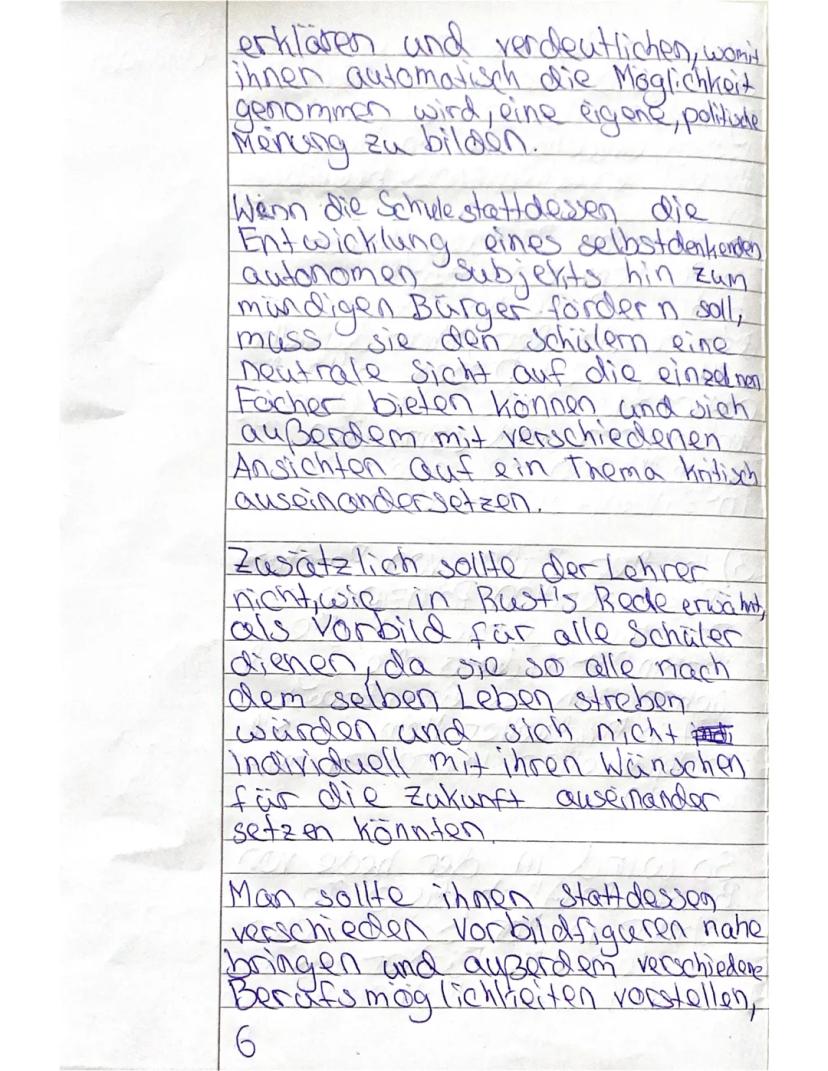 erklären und verdeutlichen, womit
ihnen automatisch die Möglichkeit
genommen wird, eine eigene, politische
Meinung zu bilden.
Wenn die Schule stattdessen die
Entwicklung eines selbstdenkenden
autonomen Subjekts hin zum
mündigen Bürger fördern soll,
muss sie den Schülern eine
neutrale Sicht auf die einzelnen
Fächer bieten können und sich
außerdem mit verschiedenen
Ansichten auf ein Thema kritisch
auseinandersetzen.
Zusätzlich sollte der Lehrer
nicht, wie in Rust's Rede erwähnt,
als Vorbild für alle Schüler
dienen, da sie so alle nach
dem selben Leben streben
würden und sich nicht
individuell mit ihren Wünschen
für die Zukunft auseinander
setzen könnten.
Man sollte ihnen stattdessen
verschieden Vorbildfiguren nahe
bringen und außerdem verschiedene
Berufsmöglichkeiten vorstellen,
6